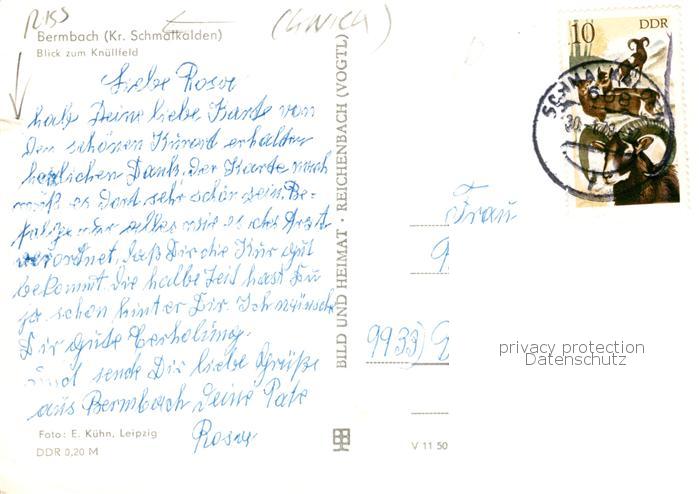 RISS
(KNICK)
Bermbach (Kr. Schmalkalden)
Blick zum Knüllfeld
Liebe Rosa
hab Deine liebe Karte von
den schönen Kurort erhalten
herzlichen Dank. Der Karte nach
muß es dort sehr schön sein. Be-
folge nur alles wie es der Arzt
verordnet, daß Dir die Kur gut
bekommt. die halbe Zeit hast Du
ja schon hinter Dir. Ich wünsche
Dir gute Erholung.
und sende Dir liebe Grüße
aus Bermbach Deine Pate
Rosa
Foto: E. Kühn, Leipzig
DDR 0,20 M
BILD UND HEIMAT · REICHENBACH (VOGTL)
V 11 50
10
DDR
Frau
9933)
privacy protection
Datenschutz